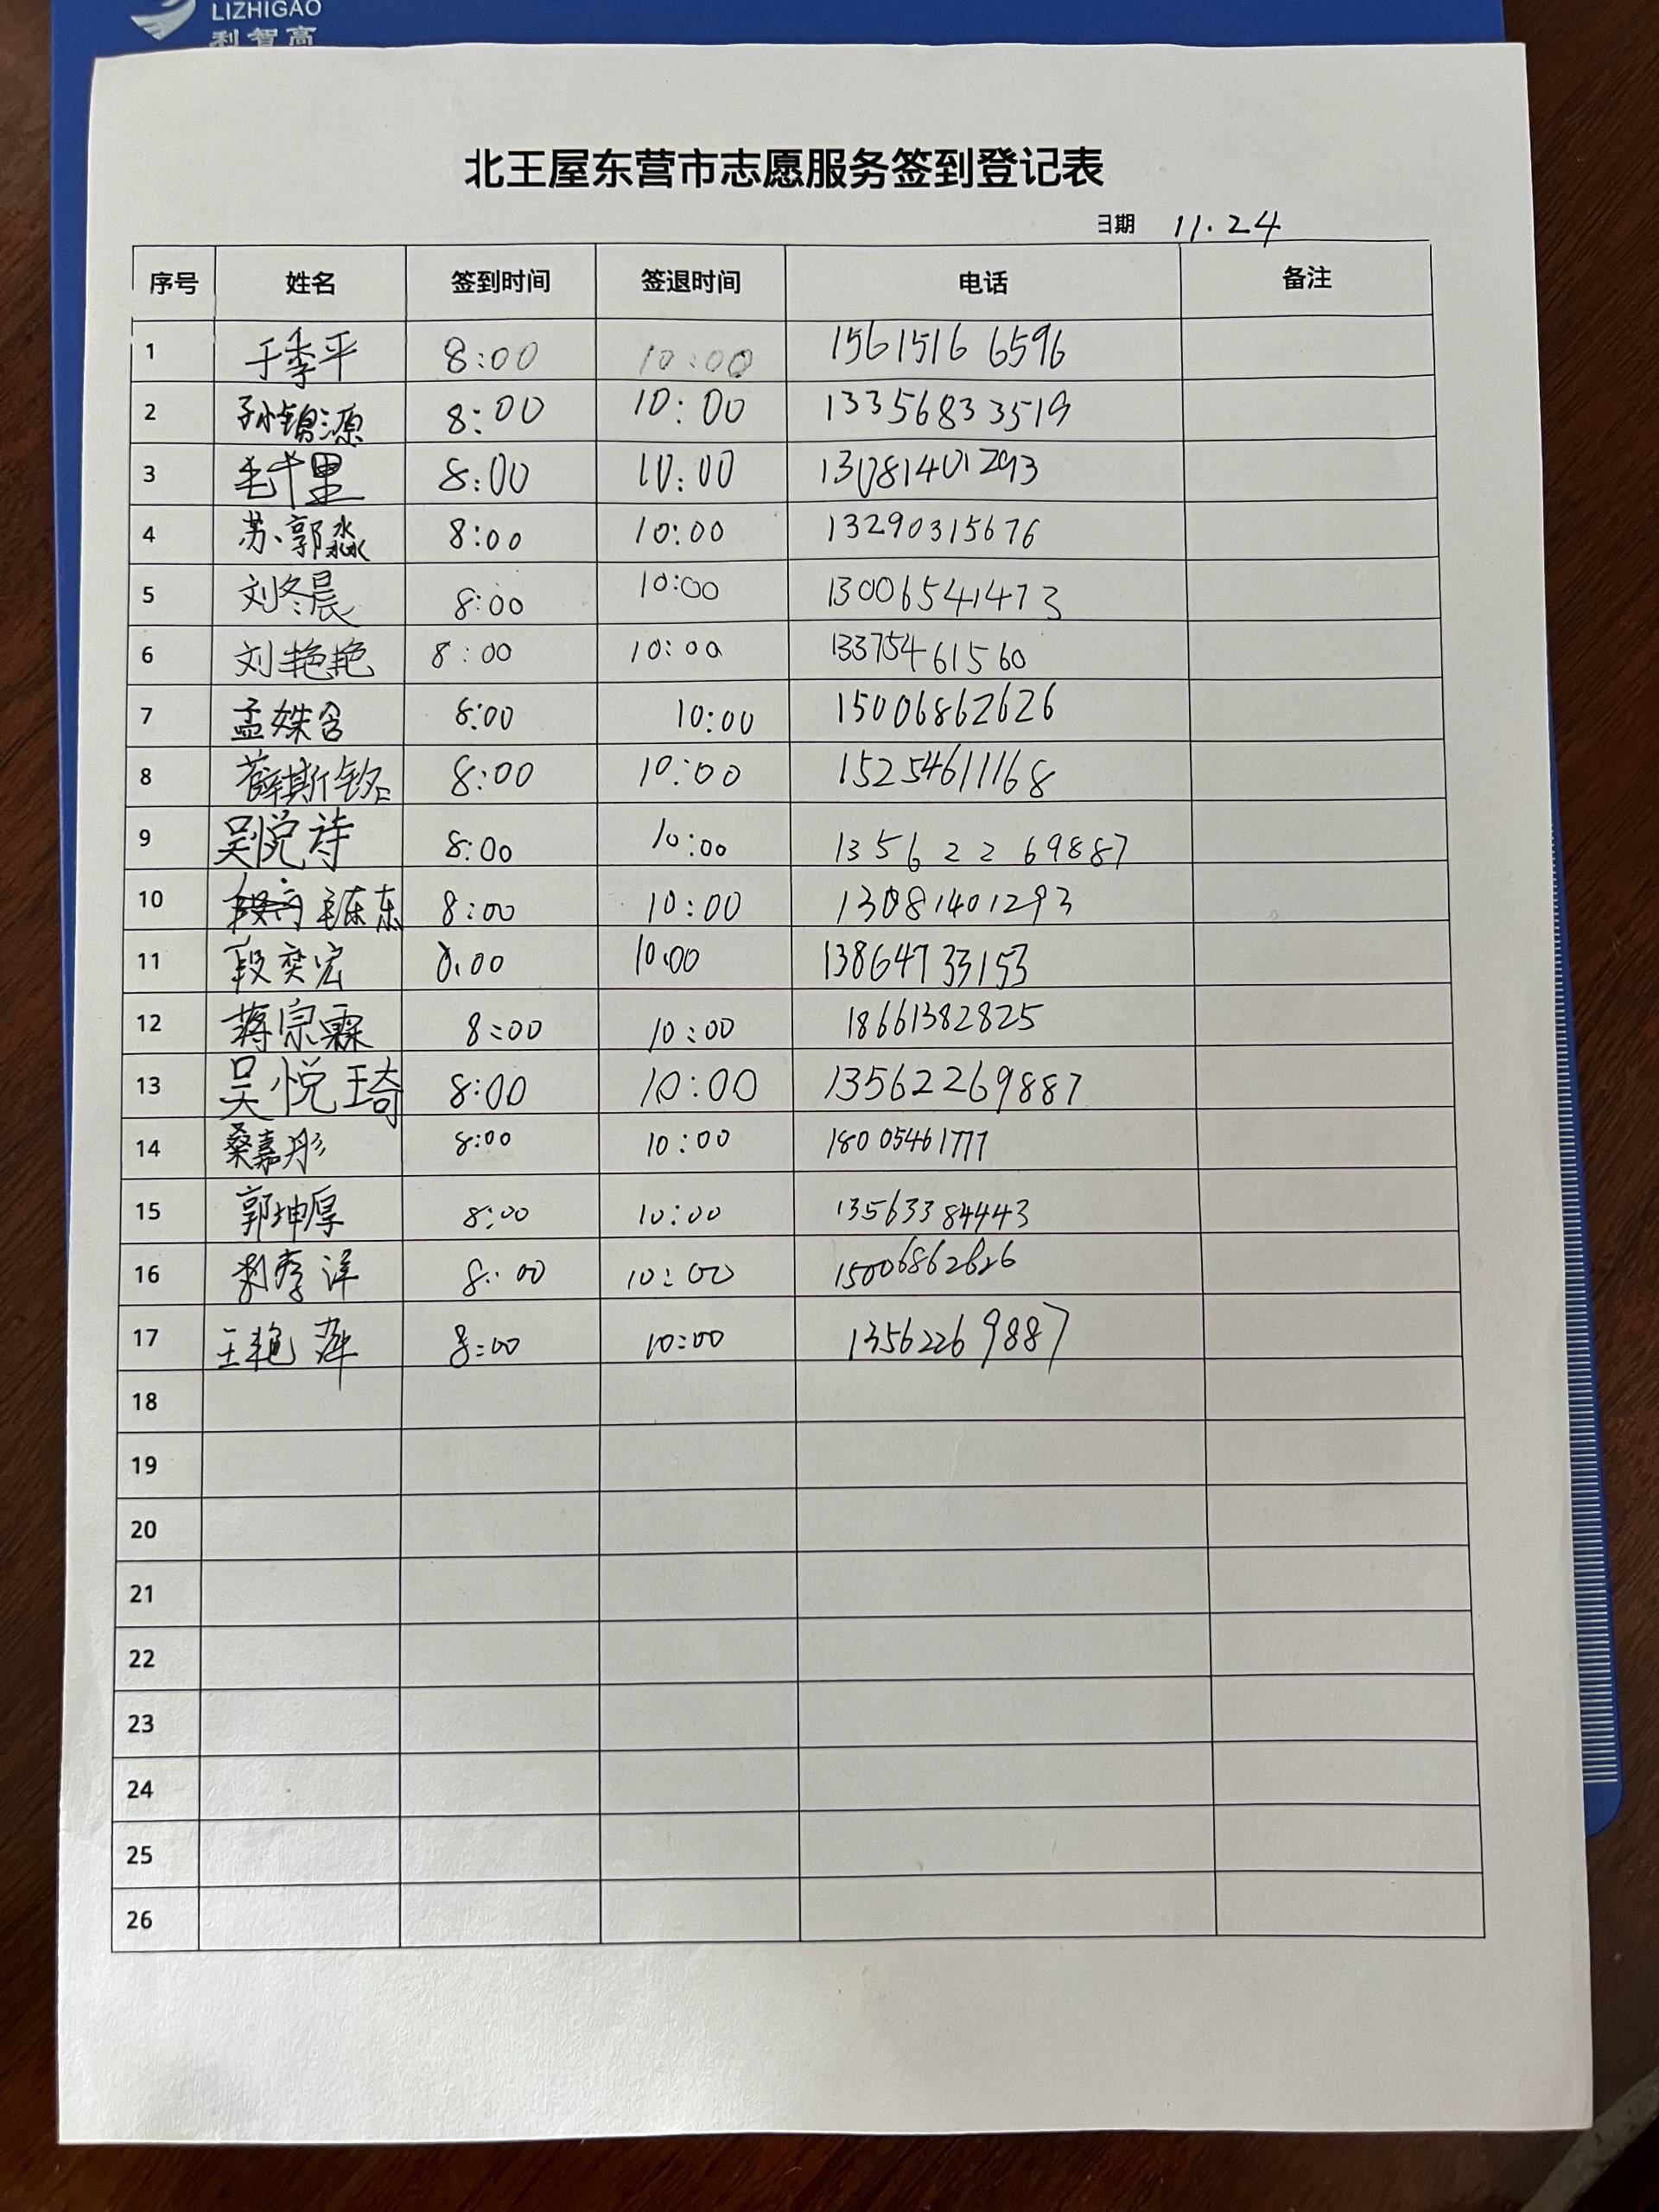 LIZHIGAO
利智高
北王屋东营市志愿服务签到登记表
日期 11.24
序号 姓名 签到时间 签退时间 电话 备注
1 于季平 8:00 10:00 15615166596
2 孙锦源 8:00 10:00 13356833519
3 毛千里 8:00 10:00 13081401293
4 苏郭淼 8:00 10:00 13290315676
5 刘冬晨 8:00 10:00 13006541473
6 刘艳艳 8:00 10:00 13375461560
7 孟姝含 8:00 10:00 15006862626
8 薛斯铭 8:00 10:00 15254611168
9 吴悦诗 8:00 10:00 13562269887
10 毛东东 8:00 10:00 13081401293
11 段奕宏 8:00 10:00 13864733153
12 蒋宗霖 8:00 10:00 18661382825
13 吴悦琦 8:00 10:00 13562269887
14 桑嘉彤 8:00 10:00 18005461777
15 郭坤厚 8:00 10:00 13563384443
16 洋 8:00 10:00 15006862626
17 王艳萍 8:00 10:00 13562269887
18
19
20
21
22
23
24
25
26